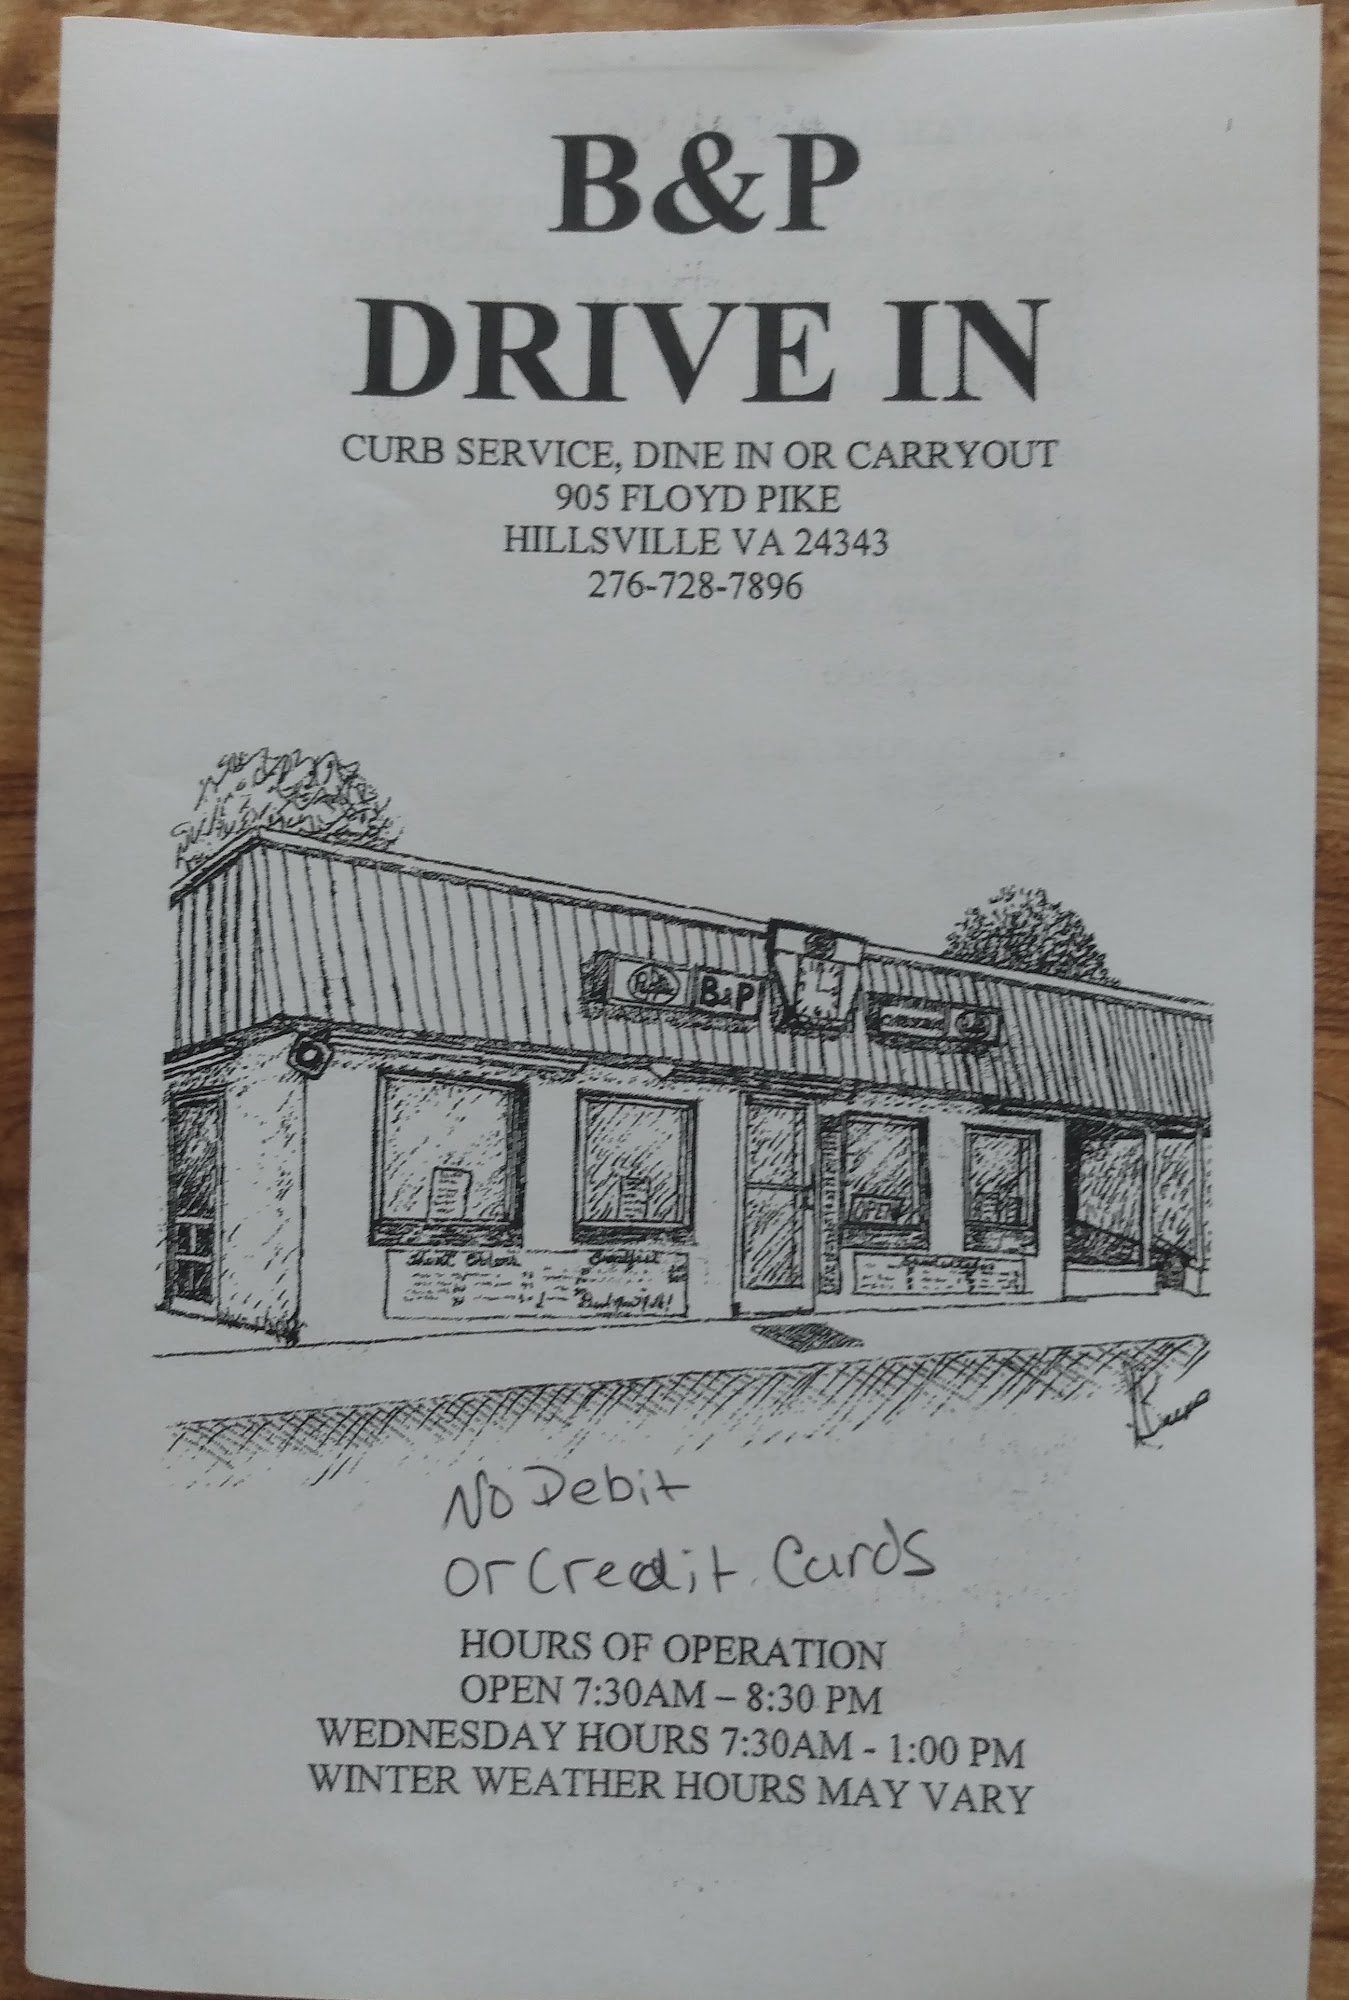 B&P
DRIVE IN
CURB SERVICE, DINE IN OR CARRYOUT
905 FLOYD PIKE
HILLSVILLE VA 24343
276-728-7896
B&P
OPEN
Short Orders
Breakfast
No Debit
or Credit Cards
HOURS OF OPERATION
OPEN 7:30AM – 8:30 PM
WEDNESDAY HOURS 7:30AM - 1:00 PM
WINTER WEATHER HOURS MAY VARY